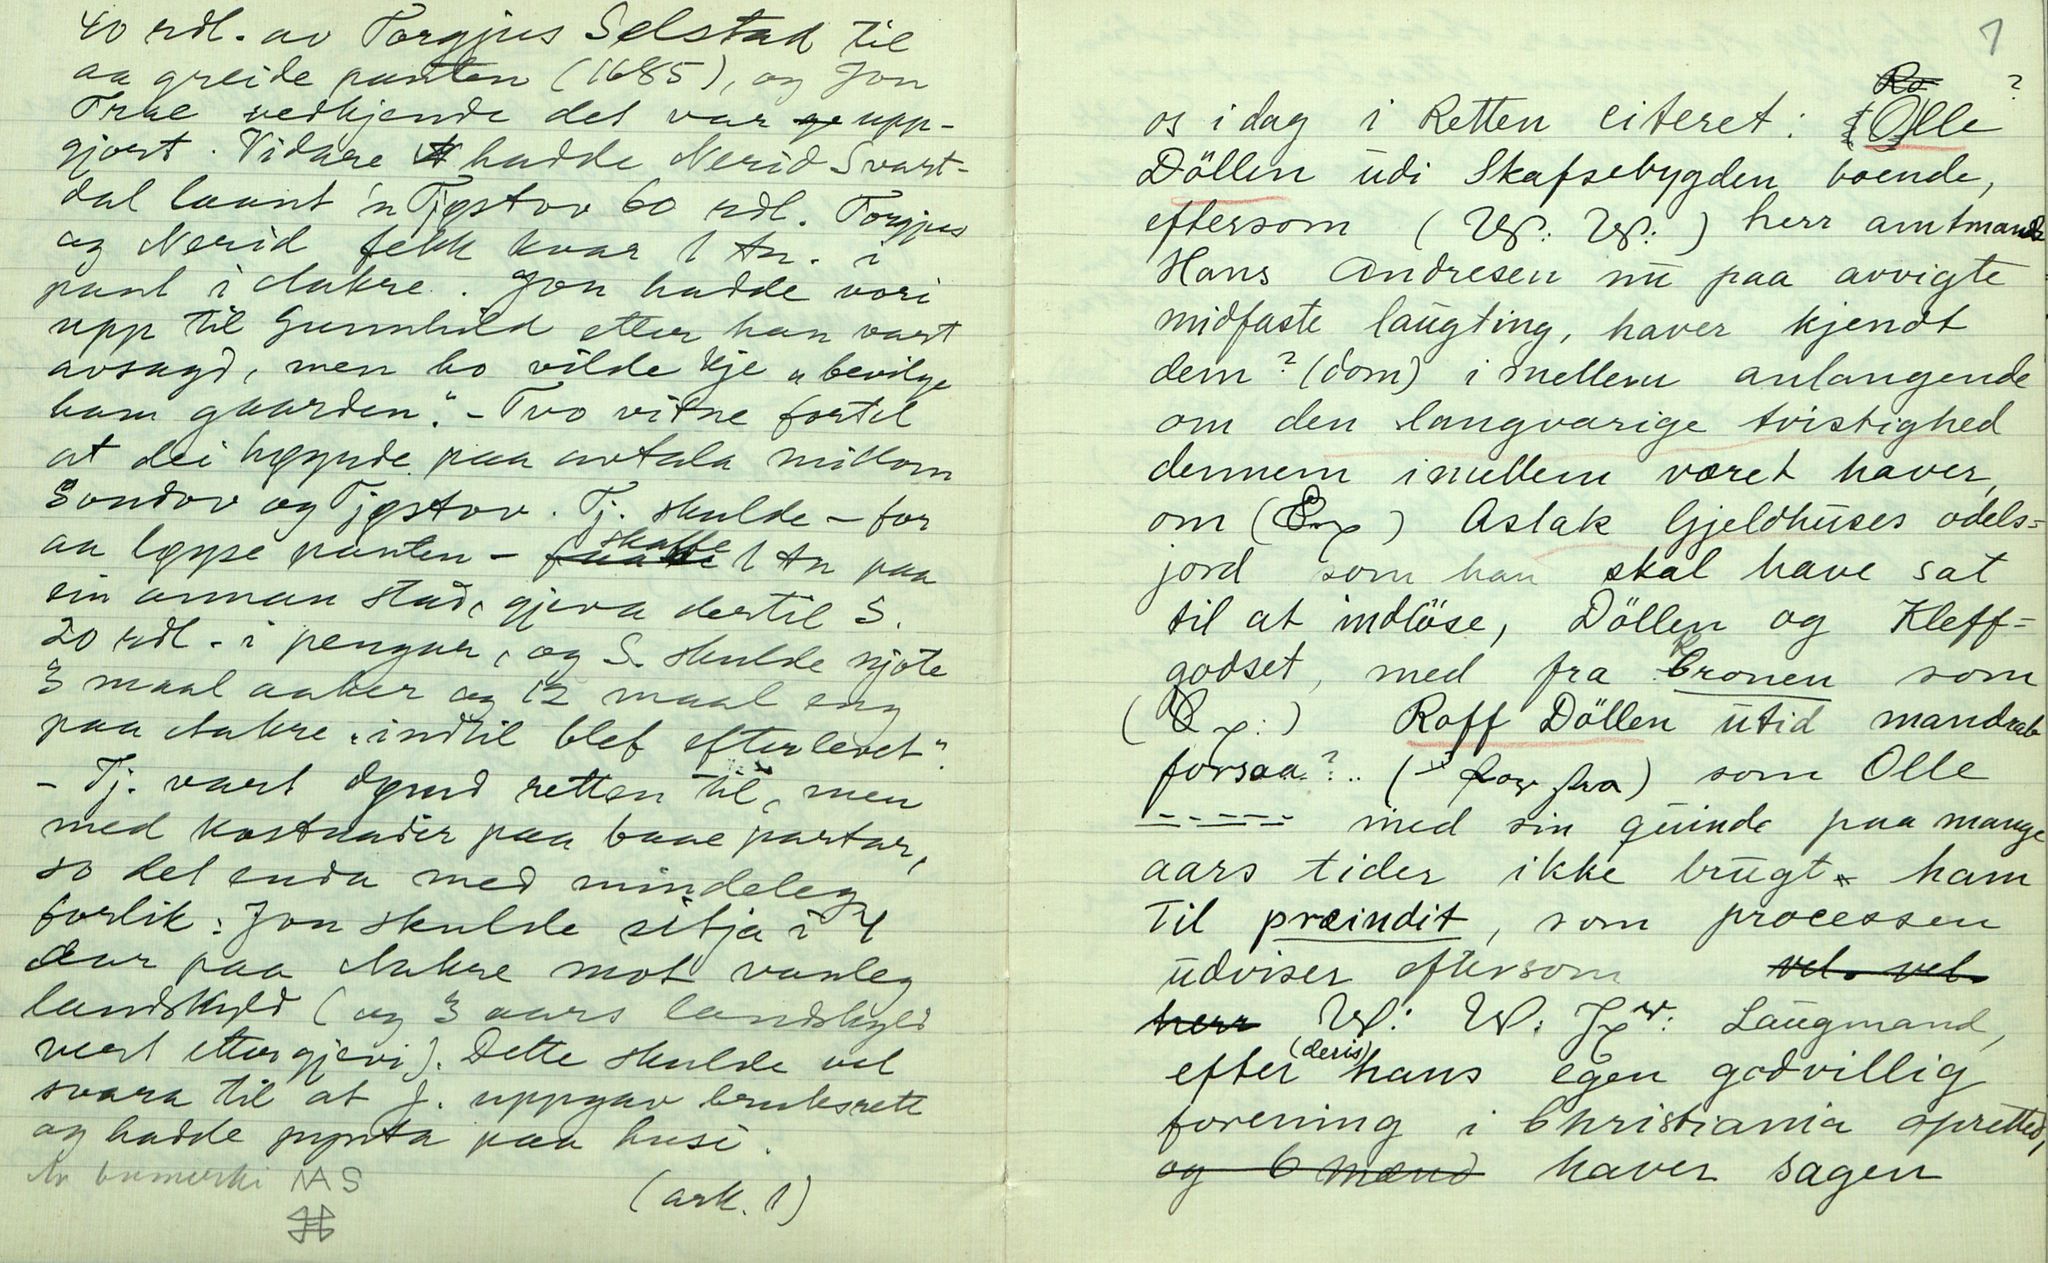 40 rdl. av Torgjus Selstad til
aa greide panten (1685), og Jon
Trae vedkjende det var upp-
gjort. Vidare hadde Nerid Svart-
dal laant 'n Tjøstov 60 rdl. Torgjus
og Nerid fekk kvar 1 tn. i
pant i Aakre. Jon hadde vori
upp til Gunnhild etter han vart
avsagd, men ho vilde kje "bevilge
ham gaarden". - Tvo vitne fortel
at dei høyrde paa avtala millom
Sondov og Tjøstov. Tj. skulde - for
aa løyse panten - skaffe 1 tn paa
ein annan stad, gjeva dertil S.
20 rdl. i pengar, og S. skulde njote
3 maal aaker og 12 maal eng
paa Aakre "indtil blef efterlevet".
- Tj. vart dømd retten til, men
med kostnader paa baae partar,
so det enda med mindeleg
forlik: Jon skulde sitja i 4
aar paa Aakre mot vanleg
landskyld (og 3 aars landskyld
vert ettergjevi). Dette skulde vel
svara til at J. uppgav bruksrett
og hadde pynta paa husi.
Av bumerki NAS
(ark. 1)
1
Ro ?
os i dag i Retten citeret: Olle
Döllen udi Skafsebygden boende,
eftersom (W: W:) herr amtmand
Hans Andresen nu paa avvigte
midfaste laugting, haver kjendt
dem? (dom) i mellem anlangende
om den langvarige tvistighed
dennem imellem været haver,
om Aslak Gjeldhuses odels=
jord som han skal have sat
til at indlöse, Döllen og Kleff=
godset, med fra Cronen som
Roff Döllen utid mandrab
forsaa?.. som Olle
----- med sin quinde paa mange
aars tider ikke brugt ham
til præindit, som processen
udviser eftersom vel. vel.
herr W: W: Laugmand,
efter (deris) hans egen godvillig
forening i Christiania opretted,
og 6 mænd haver sagen